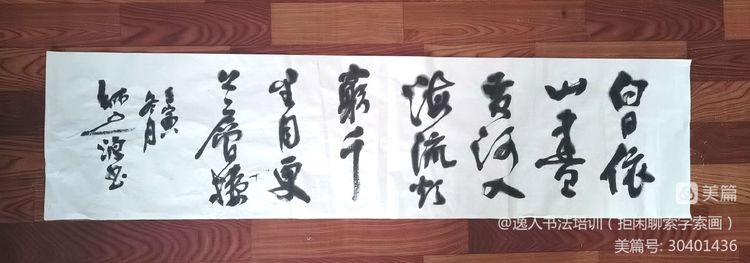 白日依
山盡
黄河入
海流欲
窮千
里目更
上一層樓
壬寅
冬月
波书
美篇
@逸人书法培训（拒闲聊索字索画）
美篇号: 30401436